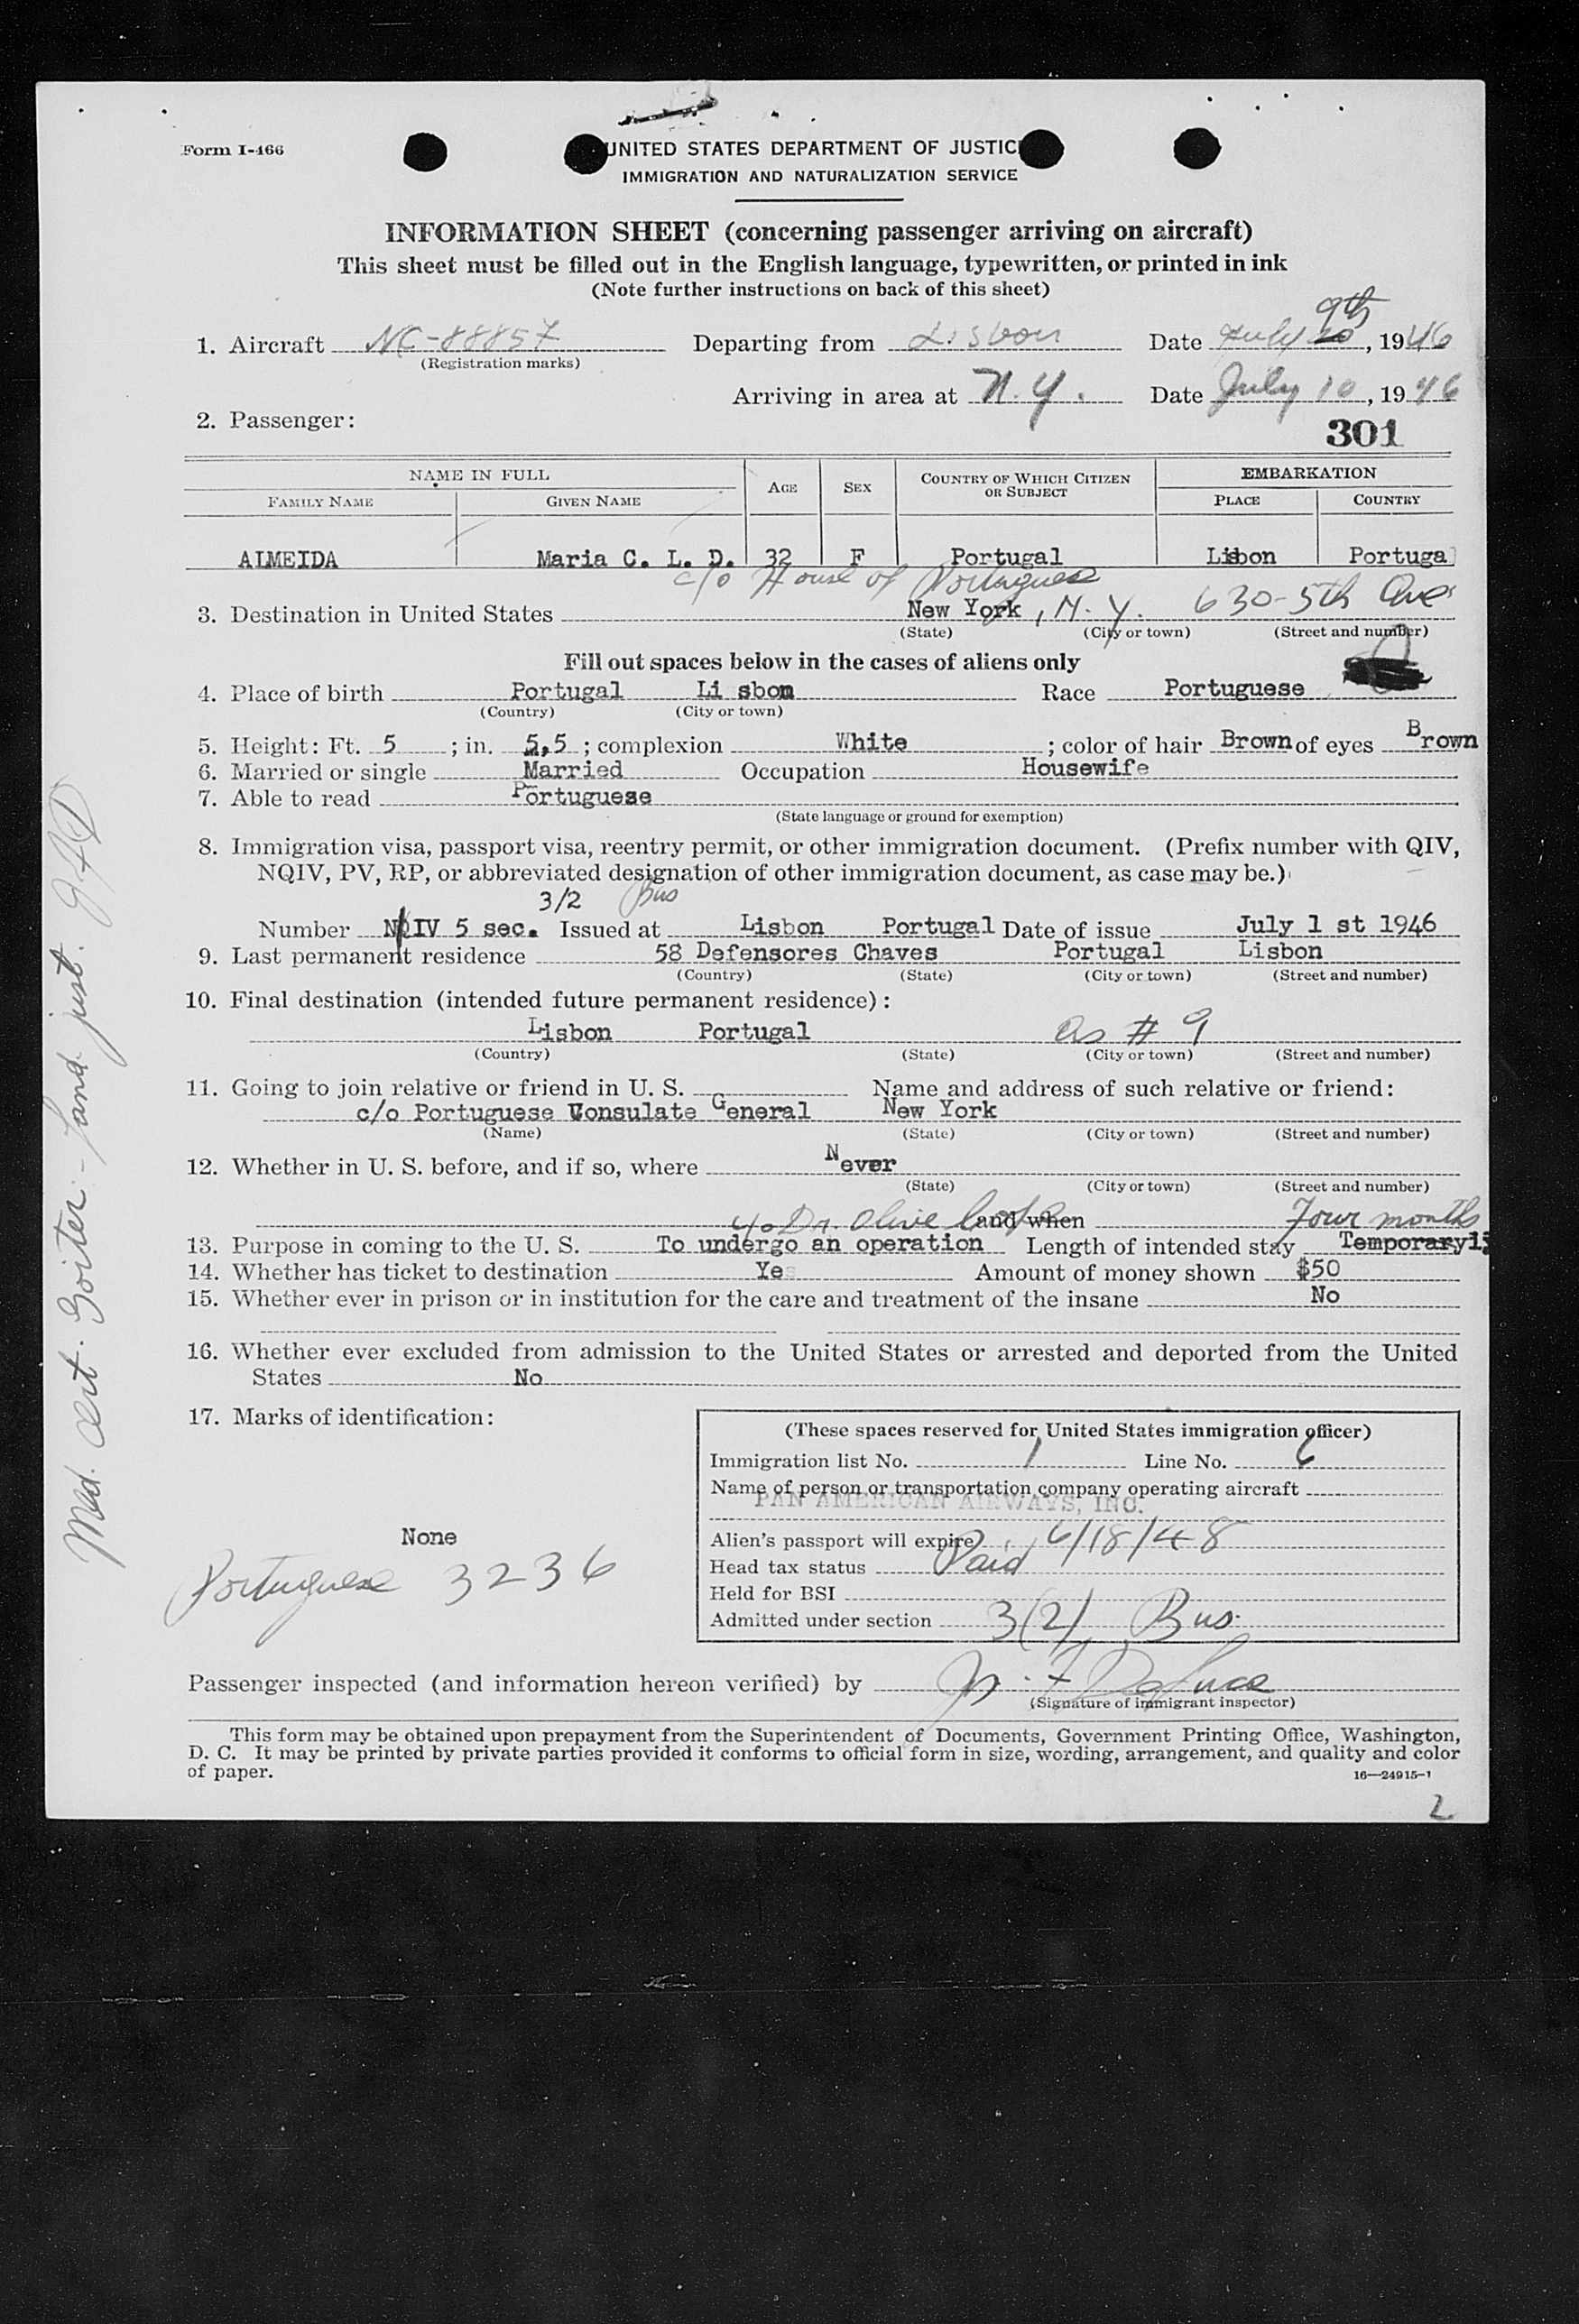 Form I-466
UNITED STATES DEPARTMENT OF JUSTIC
IMMIGRATION AND NATURALIZATION SERVICE
INFORMATION SHEET (concerning passenger arriving on aircraft)
This sheet must be filled out in the English language, typewritten, or printed in ink
(Note further instructions on back of this sheet)
9th
1. Aircraft NC-88857 Departing from Lisbon Date July 10, 1946
(Registration marks)
Arriving in area at N.Y. Date July 10, 1946
2. Passenger:
301
NAME IN FULL AGE SEX COUNTRY OF WHICH CITIZEN OR SUBJECT EMBARKATION
FAMILY NAME GIVEN NAME PLACE COUNTRY
ALMEIDA Maria C. L. D. 32 F Portugal Lisbon Portugal
c/o House of Portuguese
3. Destination in United States New York, N.Y. 630-5th Ave
(State) (City or town) (Street and number)
Fill out spaces below in the cases of aliens only
4. Place of birth Portugal Li sbon Race Portuguese
(Country) (City or town)
5. Height: Ft. 5 ; in. 5,5 ; complexion White ; color of hair Brown of eyes Brown
6. Married or single Married Occupation Housewife
7. Able to read Portuguese
(State language or ground for exemption)
8. Immigration visa, passport visa, reentry permit, or other immigration document. (Prefix number with QIV,
NQIV, PV, RP, or abbreviated designation of other immigration document, as case may be.)
3/2 Bus
Number NQIV 5 sec. Issued at Lisbon Portugal Date of issue July 1 st 1946
9. Last permanent residence 58 Defensores Chaves Portugal Lisbon
(Country) (State) (City or town) (Street and number)
10. Final destination (intended future permanent residence):
Lisbon Portugal as # 9
(Country) (State) (City or town) (Street and number)
11. Going to join relative or friend in U. S. Name and address of such relative or friend:
c/o Portuguese Consulate General New York
(Name) (State) (City or town) (Street and number)
12. Whether in U. S. before, and if so, where Never
(State) (City or town) (Street and number)
c/o Dr. Olive and when Four months
13. Purpose in coming to the U. S. To undergo an operation Length of intended stay Temporaryly
14. Whether has ticket to destination Yes Amount of money shown $50
15. Whether ever in prison or in institution for the care and treatment of the insane No
16. Whether ever excluded from admission to the United States or arrested and deported from the United
States No
17. Marks of identification:
None
Portuguese 3236
(These spaces reserved for United States immigration officer)
Immigration list No. 1 Line No. 6
Name of person or transportation company operating aircraft
PAN AMERICAN AIRWAYS, INC.
Alien's passport will expire 6/18/48
Head tax status Paid
Held for BSI
Admitted under section 3(2) Bus.
Passenger inspected (and information hereon verified) by
(Signature of immigrant inspector)
This form may be obtained upon prepayment from the Superintendent of Documents, Government Printing Office, Washington,
D. C. It may be printed by private parties provided it conforms to official form in size, wording, arrangement, and quality and color
of paper.
16—24915-1
2
Med. Cert. Goiter - Land. just.